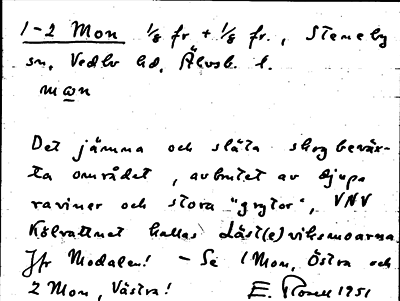 1-2 Mon 1/8 fr + 1/8 fr., Steneby
sn, Vedbo hd, Älvsb. l.
mɷn
Det jämna och släta skogbeväx-
ta området, avbrutet av djupa
raviner och stora "grytor", VNV
Kölvattnet kallas Läst(e)viksmoarna.
Jfr Modalen! - Se 1 Mon, Östra och
2 Mon, Västra! E. 1951